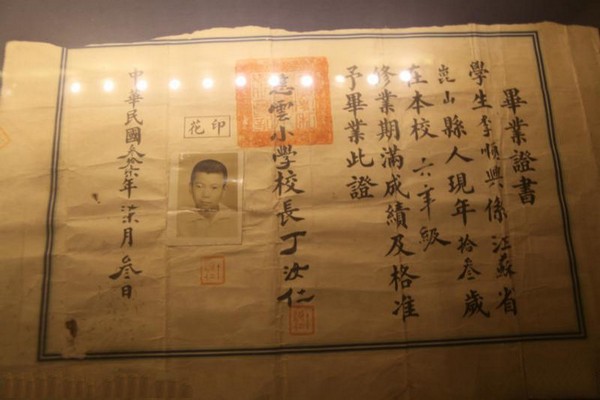 畢業證書
學生李順興係江蘇省
崑山縣人現年拾叁歲
在本校六年級
修業期滿成績及格准
予畢業此證
雲小學校長丁汝仁
印花
中華民國叁拾年柒月叁日